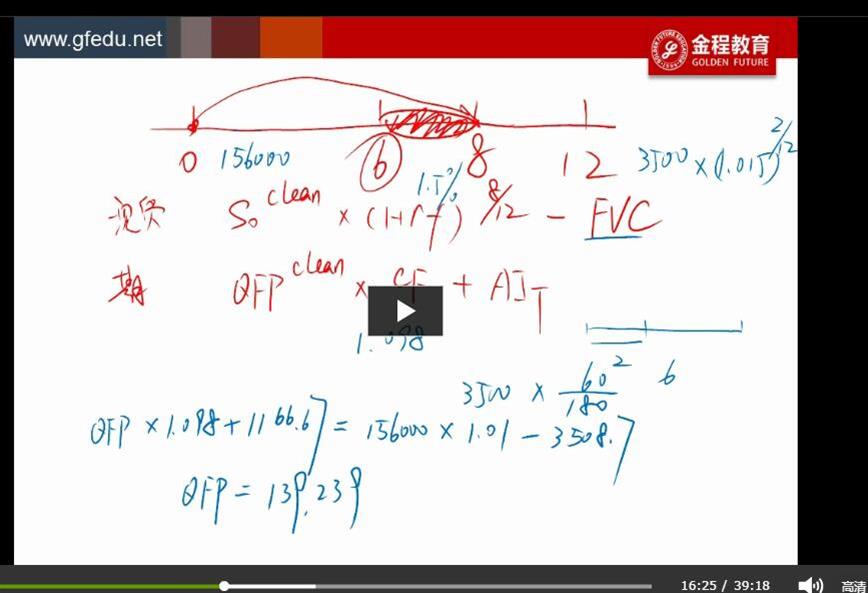 www.gfedu.net
金程教育
GOLDEN FUTURE
0 156000 6 8 12 3500 × (1.015)^2/12
1.5%
现货 S₀^clean × (1+rf)^8/12 − FVC
期 QFP^clean × CF + AI_T
1.098
3500 × 60/180 2 6
QFP × 1.098 + 1166.67 = 156000 × 1.01 − 3508.7
QFP = 139.239
16:25 / 39:18 高清